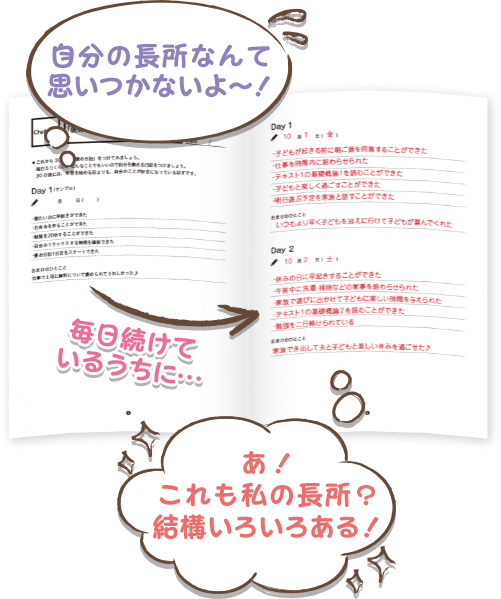 自分の長所なんて
思いつかないよ〜!
Day 1(サンプル)
月 日( )
・朝たいのに早起きができた
・お弁当を作ることができた
・勉強を20分することができた
・自分のリラックスする時間を確保できた
・褒め日記1日目をスタートできた
おまけのひとこと
仕事で上司に資料について褒められてうれしかった♪
毎日続けて
いるうちに…
Day 1
10 月 1 日( 金 )
・子どもが起きる前に朝ご飯を用意することができた
・仕事を時間内に終わらせられた
・テキスト1の基礎概論1を読むことができた
・子どもと楽しく過ごすことができた
・明日遊ぶ予定を家族と話すことができた
おまけのひとこと
いつもより早く子どもを迎えに行けて子どもが喜んでくれた
Day 2
10 月 2 日( 土 )
・休みの日に早起きすることができた
・午前中に洗濯・掃除などの家事を終わらせられた
・家族で遊びに出かけて子どもに楽しい時間を与えられた
・テキスト1の基礎概論2を読むことができた
・勉強を二日続けられている
おまけのひとこと
家族で外出して夫と子どもと楽しい休みを過ごせた♪
あ!
これも私の長所?
結構いろいろある!